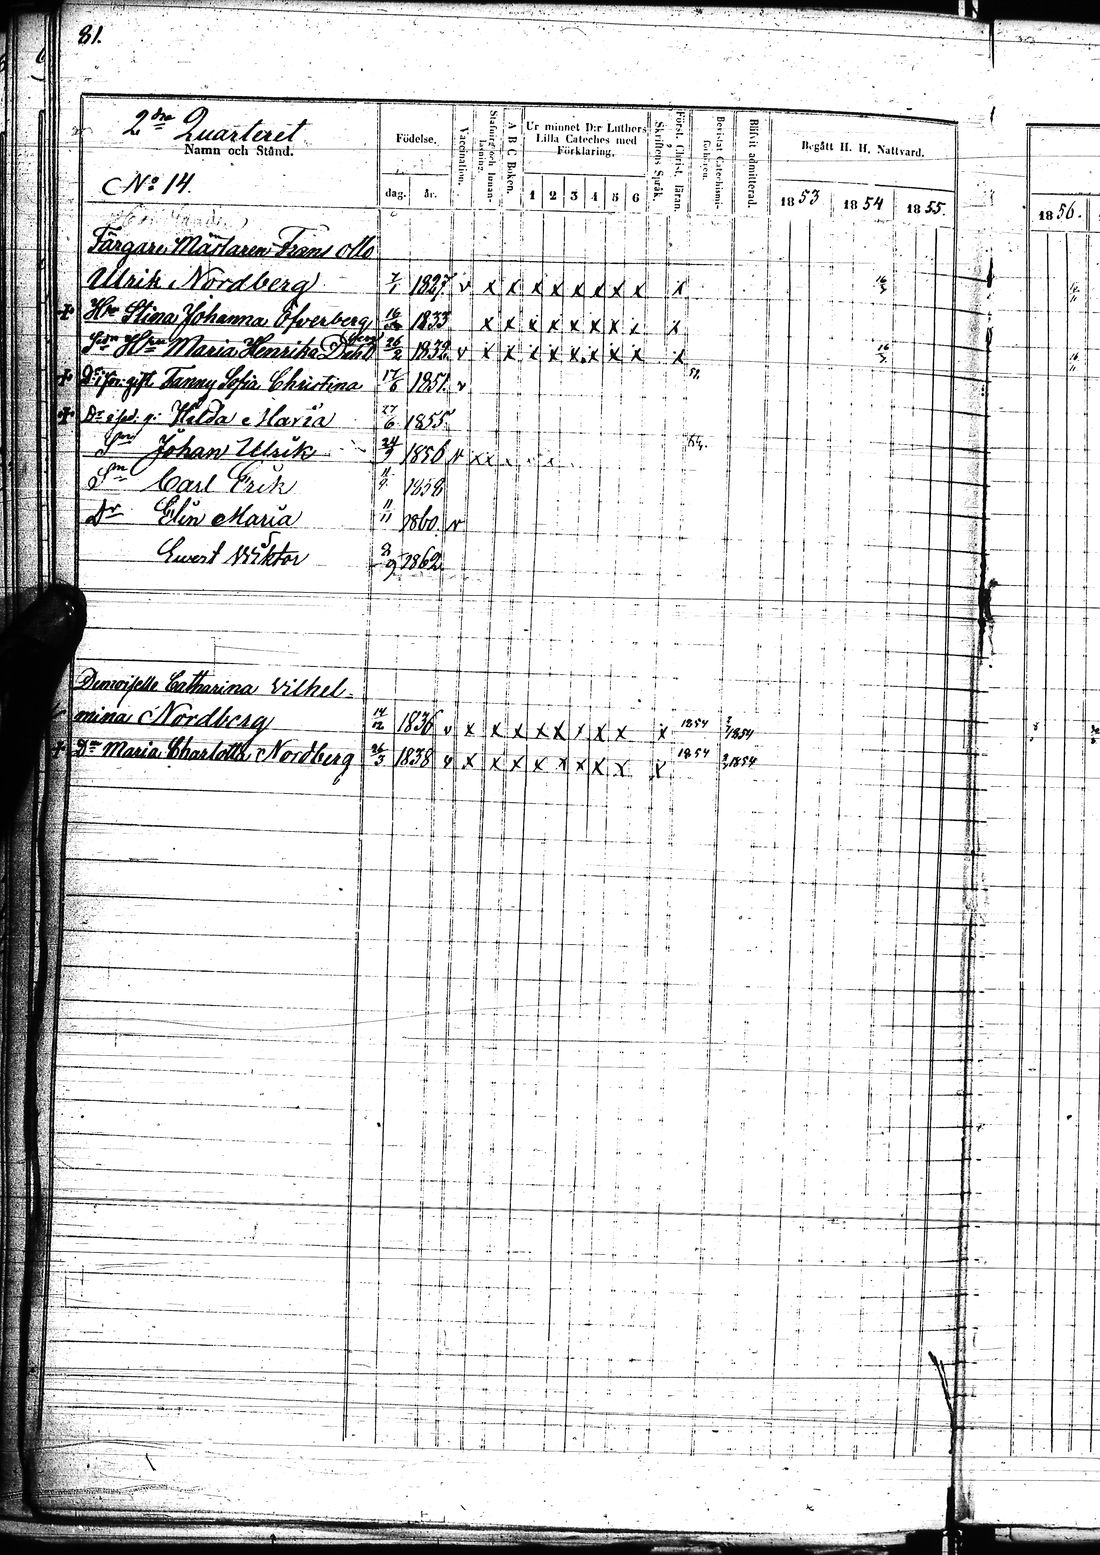 81.
2dra Quarteret
Namn och Stånd.
No 14.
Födelse.
dag. år.
Vaccination.
Stafning och Innanläsning.
A B C Boken.
Ur minnet D:r Luthers
Lilla Cateches med
Förklaring.
1 2 3 4 5 6
Skriftens Språk.
Först. Christ. läran.
Bevistat Catechismi-förhören.
Blifvit admitterad.
Begått H. H. Nattvard.
1853 1854 1855.
1856.
Färgare Mästaren Frans Otto
Ulrik Nordberg 7/1 1827 v x x x x x x x x x 16/3
+ Hru Stina Johanna Öfverberg 16 1833 x x x x x x x x x
Hru Maria Henrika Dahl 26/2 1832 v x x x x x x x x x 16/3
+ Fanny Sofia Christina 17/6 1851 v
+ Dr Hilda Maria 27/6 1855
Sn Johan Ulrik 24/9 1856 v x x
Sn Carl Erik 11/9 1858
Dr Elin Maria 11/11 1860. v
Ewert Wiktor 8/9 1862
Demoiselle Catharina Vilhel-
mina Nordberg 14/12 1836 v x x x x x x x x x 1854 1854
+ Dr Maria Charlotta Nordberg 26/3 1838 v x x x x x x x x x 1854 1854